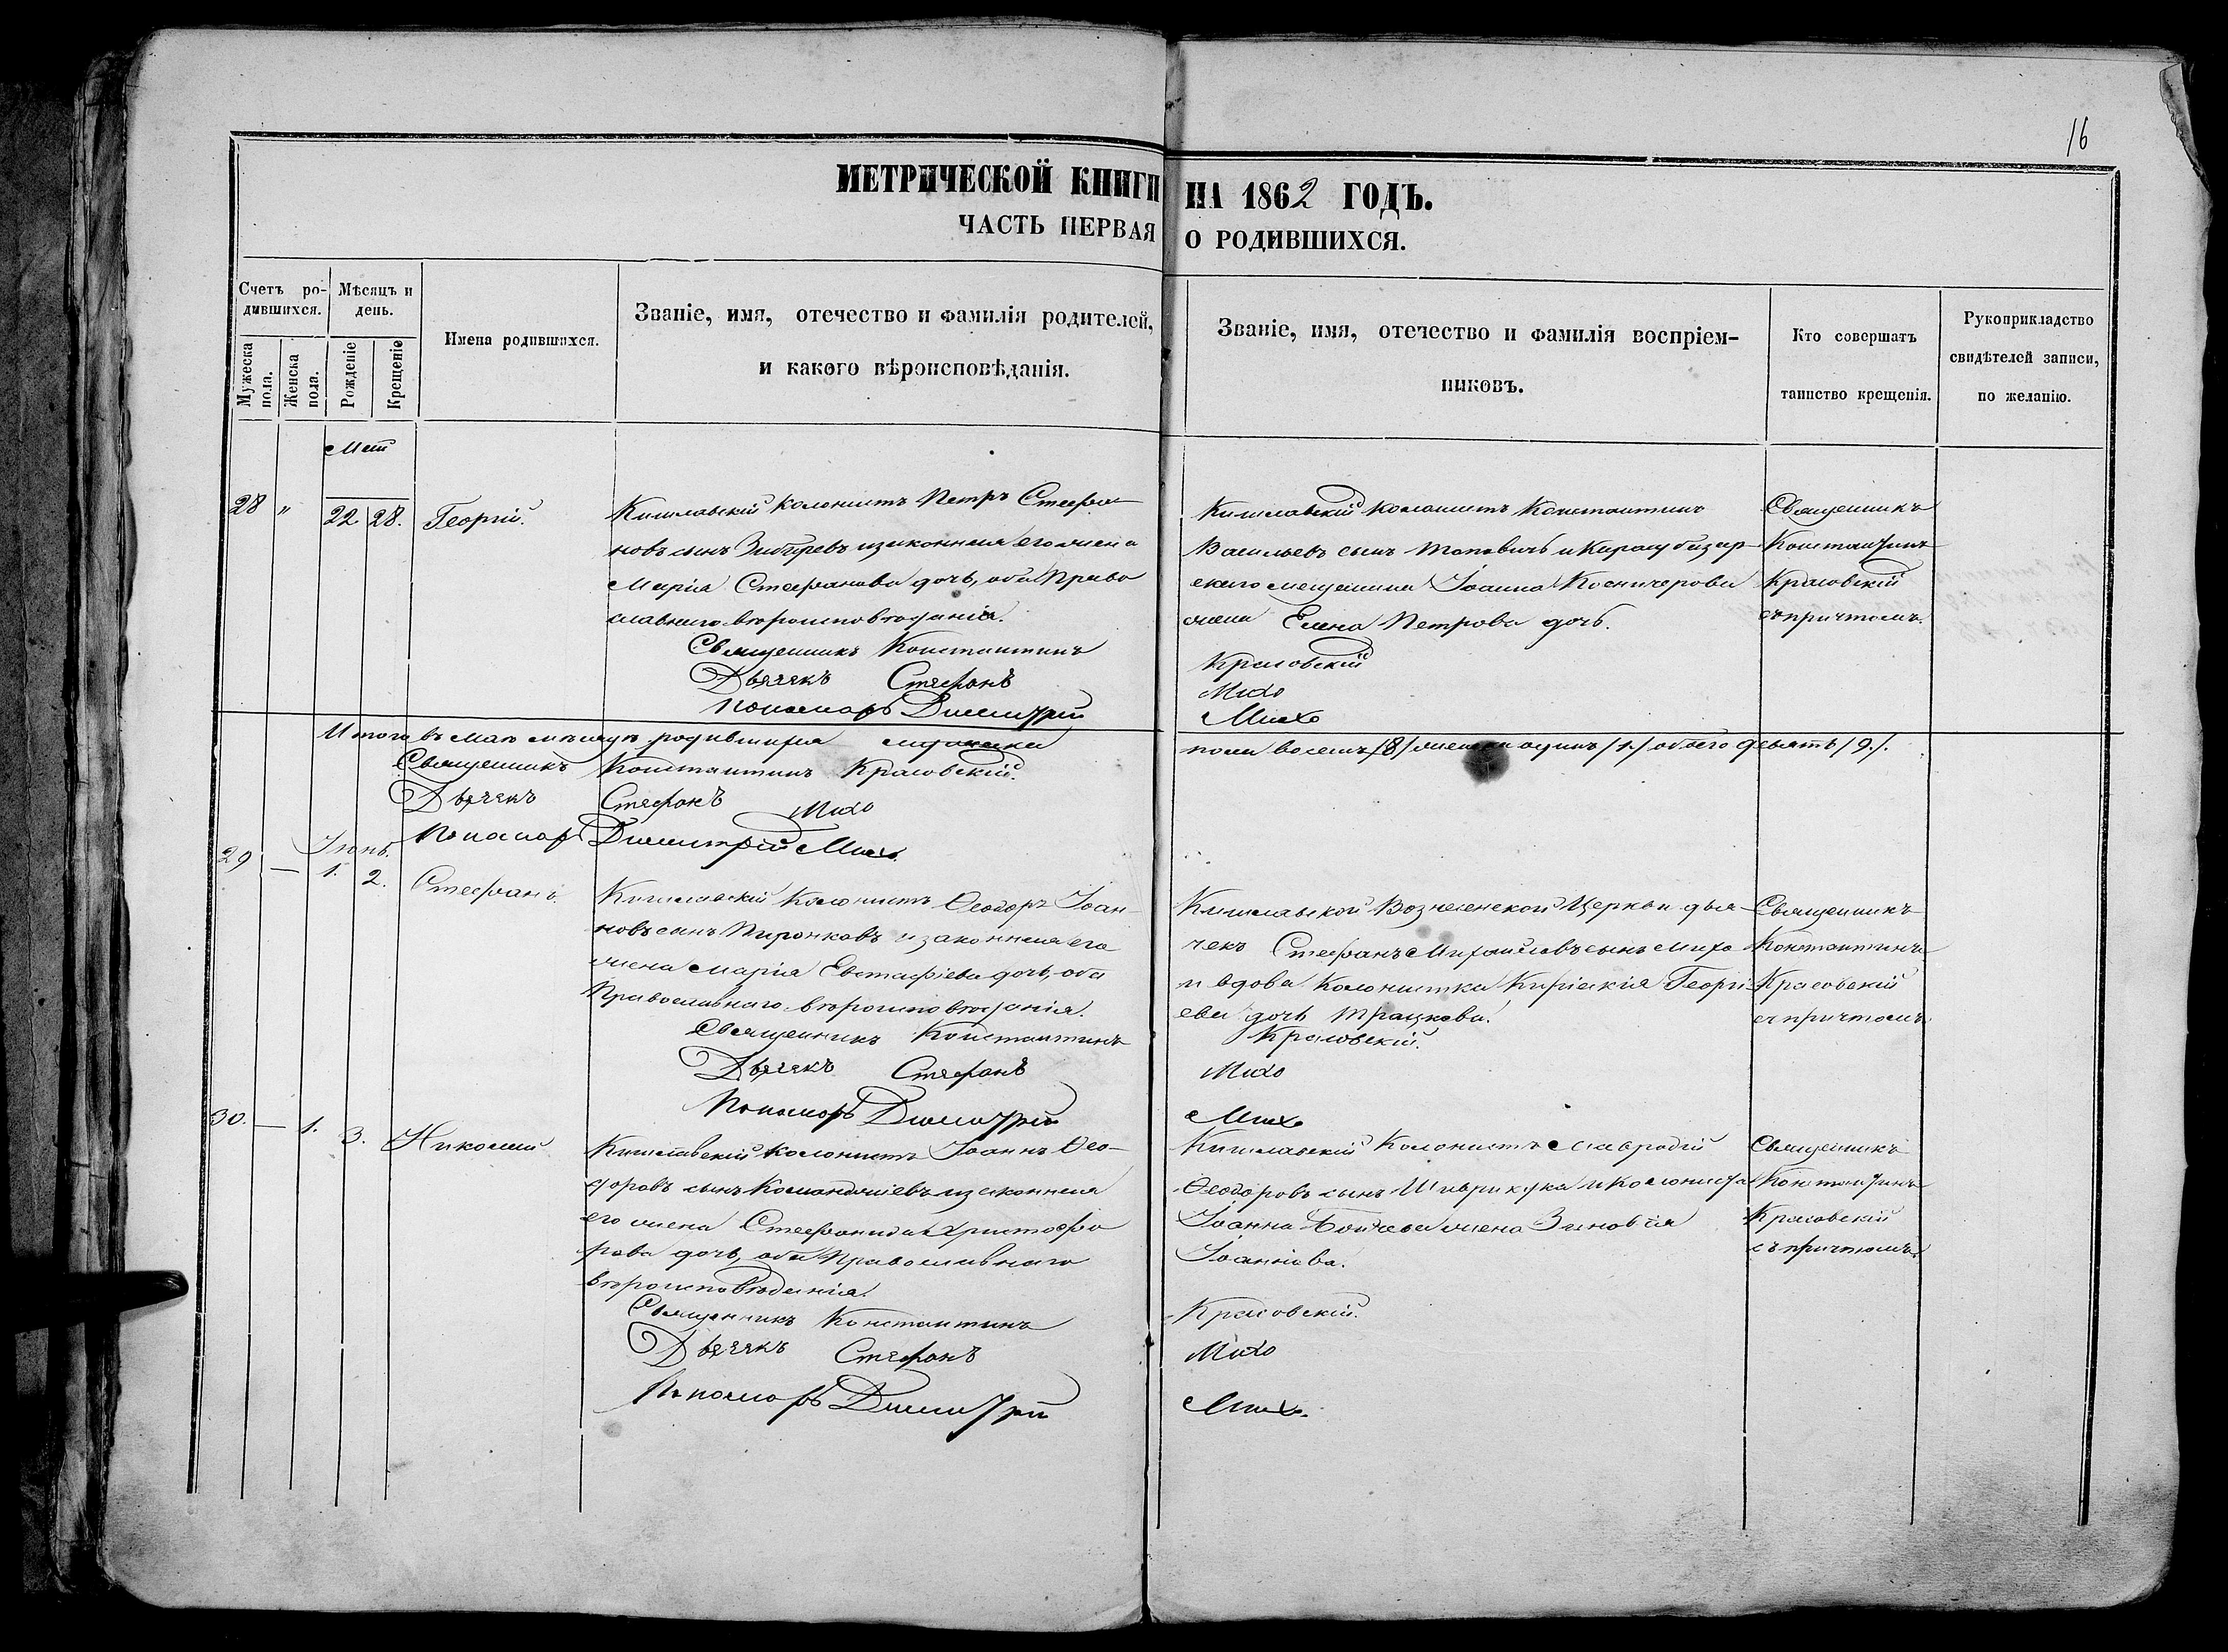 16
МЕТРИЧЕСКОЙ КНИГИ НА 1862 ГОДЪ.
ЧАСТЬ ПЕРВАЯ О РОДИВШИХСЯ.
Счетъ ро-
дившихся.
Мужеска пола.
Женска пола.
Мѣсяцъ и
день.
Рожденіе
Крещеніе
Имена родившихся.
Званіе, имя, отечество и фамилія родителей,
и какого вѣроисповѣданія.
Званіе, имя, отечество и фамилія воспріем-
никовъ.
Кто совершатъ
таинство крещенія.
Рукоприкладство
свидѣтелей записи,
по желанію.
28 " 22 28. Георгій.
колонистъ Петръ Стефа-
новъ сынъ законная его жена
Марія Стефанова дочь, оба Право
славнаго вѣроисповѣданія.
Священникъ Константинъ
Дьячекъ Стефанъ
Пономарь Димитрій
колонистъ Константинъ
Васильевъ сынъ
мещанина Іоанна
жена Елена Петрова дочь.
Красовскій
Михо
Михо
Священникъ
Константинъ
Красовскій
съ причтомъ.
Итого въ маѣ мѣсяцѣ родившихся мужеска пола восемь /8/ женска одинъ /1./ обоего девять /9./.
Священникъ Константинъ Красовскій.
Дьячекъ Стефанъ Михо
Пономарь Димитрій Михо
Іюнь.
29 — 1. 2. Стефанъ.
Колонистъ Ѳеодоръ Іоан-
новъ сынъ Пиронковъ и законная его
жена Марія Евстафіева дочь, оба
Православнаго вѣроисповѣданія.
Священникъ Константинъ
Дьячекъ Стефанъ
Пономарь Димитрій
Вознесенской Церкви дья-
чекъ Стефанъ Михайловъ сынъ Михо
и вдова Колонистка Киріакія Георгі-
ева дочь
Красовскій.
Михо
Михо
Священникъ
Константинъ
Красовскій
съ причтомъ
30. — 1. 3. Николай
колонистъ Іоаннъ Ѳео-
доровъ сынъ законная
его жена Стефанида Христофо
рова дочь, оба Православнаго
вѣроисповѣданія.
Священникъ Константинъ
Дьячекъ Стефанъ
Пономарь Димитрій
Колонистъ Мавродій
Ѳеодоровъ сынъ и колониста
Іоанна жена Зиновія
Іоаннова.
Красовскій.
Михо
Михо.
Священникъ
Константинъ
Красовскій
съ причтомъ.